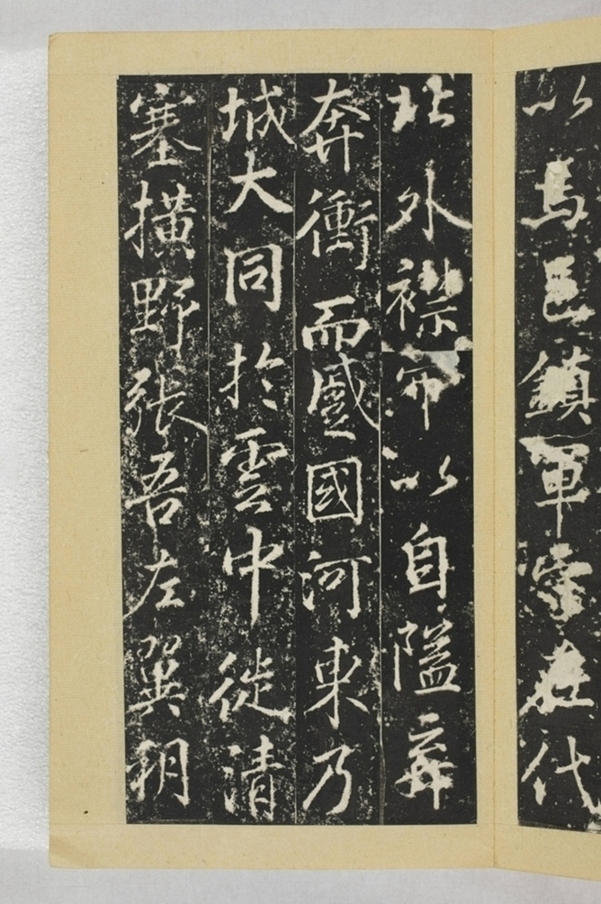 以馬邑鎮軍守在代
北外襟帶以自隘弃
奔衝而蹙國河東乃
城大同於雲中徙清
塞橫野張吾左翼朔